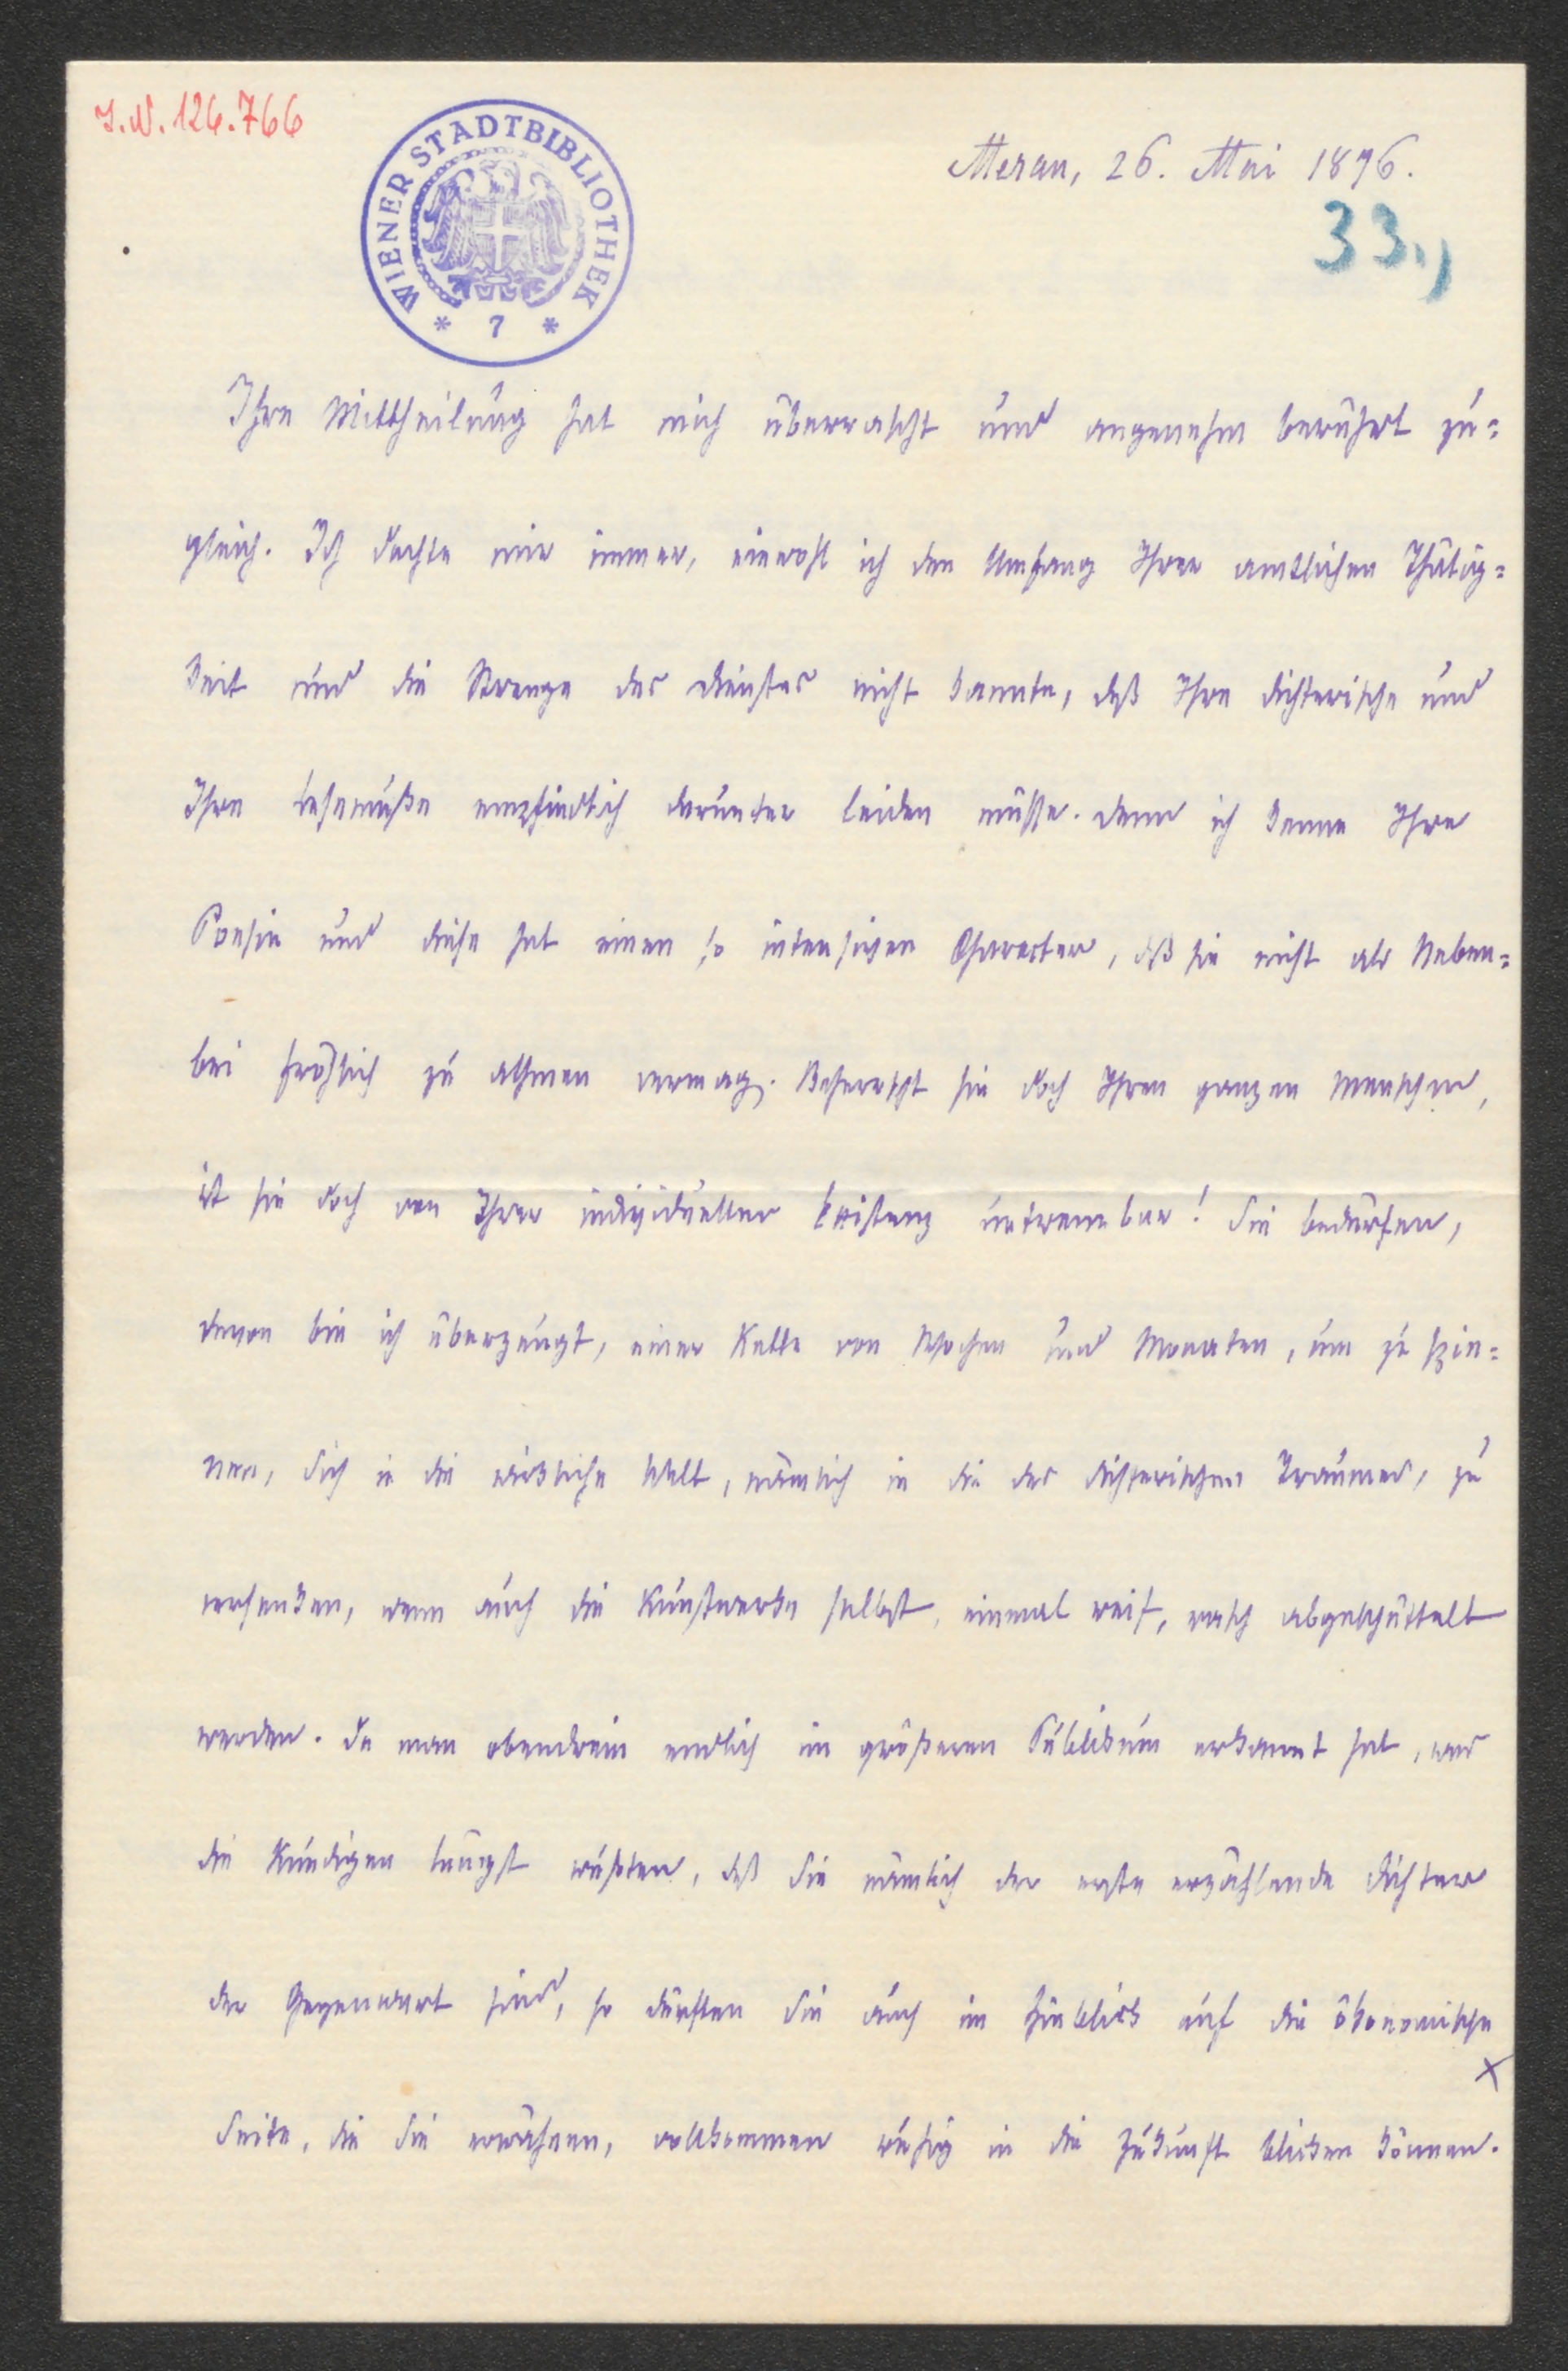 I.N. 126.766
WIENER STADTBIBLIOTHEK
* 7 *
Meran, 26. Mai 1896.
33.,
Ihre Mittheilung hat mich überrascht und angenehm berührt zu=
gleich. Ich dachte mir immer, wiewohl ich den Umfang Ihrer amtlichen Thätig=
keit und die Strenge des Dienstes nicht kannte, daß Ihre dichterische und
Ihre Lesemuße empfindlich darunter leiden müsse. Denn ich kenne Ihre
Poesie und diese hat einen so intensiven Character, daß sie nicht als Neben=
bei fröhlich zu athmen vermag. Beherrscht sie doch Ihren ganzen Menschen,
ist sie doch von Ihrer individuellen Existenz untrennbar! Sie bedürfen,
davon bin ich überzeugt, einer Kette von Wochen und Monaten, um zu spin=
nen, sich in die wirkliche Welt, nämlich in die des dichterischen Traumes, zu
versenken, wenn auch die Kunstwerke selbst, einmal reif, rasch abgeschüttelt
werden. Da man obendrein endlich im größeren Publikum erkannt hat, was
die Kundigen längst wußten, daß Sie nämlich der erste erzählende Dichter
der Gegenwart sind, so dürften Sie auch im Hinblick auf die ökonomische
x
Seite, die Sie erwähnen, vollkommen ruhig in die Zukunft blicken können.